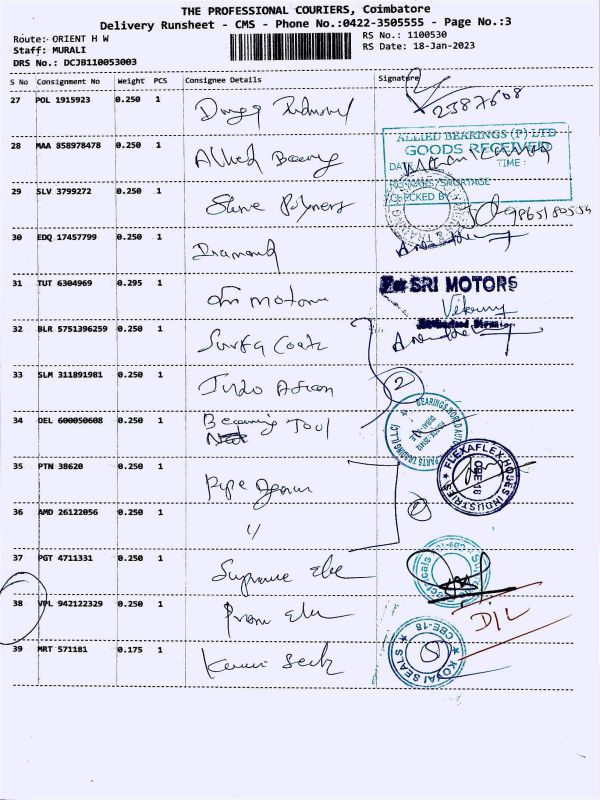 THE PROFESSIONAL COURIERS, Coimbatore
Delivery Runsheet - CMS - Phone No.:0422-3505555 - Page No.:3
Route:- ORIENT H W
RS No.: 1100530
Staff: MURALI
RS Date: 18-Jan-2023
DRS No.: DCJB110053003
S No Consignment No Weight PCS Consignee Details Signature
27 POL 1915923 0.250 1
2387608
28 MAA 858978478 0.250 1 Allied Bearing
ALLIED BEARINGS (P) LTD
GOODS RECEIVED
DATE TIME :
REMARKS/SHORTAGE
CHECKED BY
29 SLV 3799272 0.250 1 Shine Polymers
30 EDQ 17457799 0.250 1 Diamond
31 TUT 6304969 0.295 1 Sri Motors
For SRI MOTORS
32 BLR 5751396259 0.250 1 Coats
33 SLM 311891981 0.250 1 Indo
2
34 DEL 600050608 0.250 1 Tool
BEARINGS WORLD AUTO PARTS TRADING (LLC)
35 PTN 38620 0.250 1 Pipe
FLEXAFLEX HOSES INDUSTRIES
CBE-18
36 AMD 26122056 0.250 1 "
37 PGT 4711331 0.250 1 Supreme
38 VPL 942122329 0.250 1
D/L
39 MRT 571181 0.175 1
KOVAI SEALS CBE-18